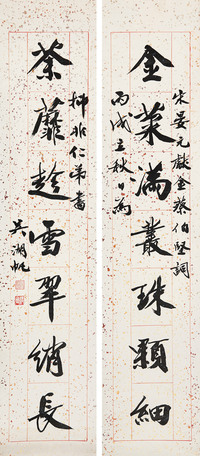 宋晏元獻金蔡伯堅詞
金菊滿叢珠顆細
丙戌立秋日為
非仁弟書
荼蘼趁雪翠綃長
吳湖帆